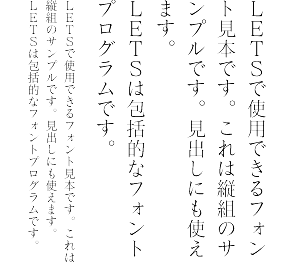 LETSで使用できるフォン
ト見本です。これは縦組のサ
ンプルです。見出しにも使え
ます。
LETSは包括的なフォント
プログラムです。
LETSで使用できるフォント見本です。これは
縦組のサンプルです。見出しにも使えます。
LETSは包括的なフォントプログラムです。